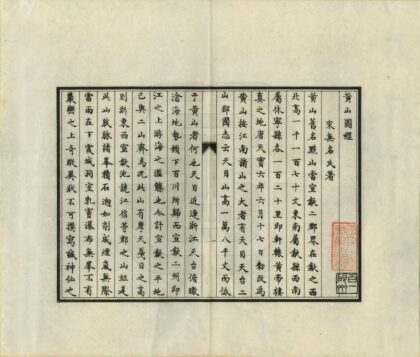 黃山圖經
宋無名氏著
黃山舊名黟山當宣歙二郡界在歙之西
北高一千一百七十丈東南屬歙縣西南
屬休寧縣各一百二十里即軒轅黃帝棲
真之地唐天寶六年六月十七日勅改為
黃山按江南諸山之大者有天目天台二
山郡國志云天目山高一萬八千丈而低
于黃山者何也天目近連浙江天台俯瞰
滄海地勢傾下百川所歸而宣歙二州即
江之上游海之濫觴也今計宣歙之平地
已與二山齊焉況此山有摩天戛日之高
則浙東西宣歙池饒江信等郡之山並是
此山支脉諸峯積石迥如削成煙嵐無際
雷雨在下霞城洞室乳竇瀑布無峯不有
巖巒之上奇蹤異狀不可摸寫誠神仙之